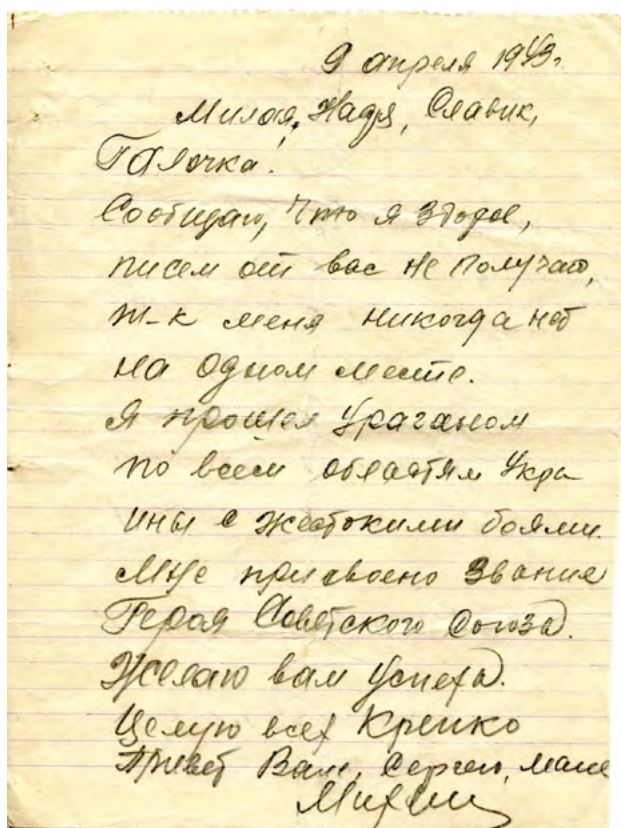 9 апреля 1943г.
Милая, Надя, Славик,
Галочка!
Сообщаю, что я здоров,
писем от вас не получаю,
т-к меня никогда нет
на одном месте.
Я прошел ураганом
по всем областям Укра
ины с жестокими боями.
Мне присвоено звание
Героя Советского Союза.
Желаю вам успеха.
Целую всех крепко
Привет Вале, Сергею, маме